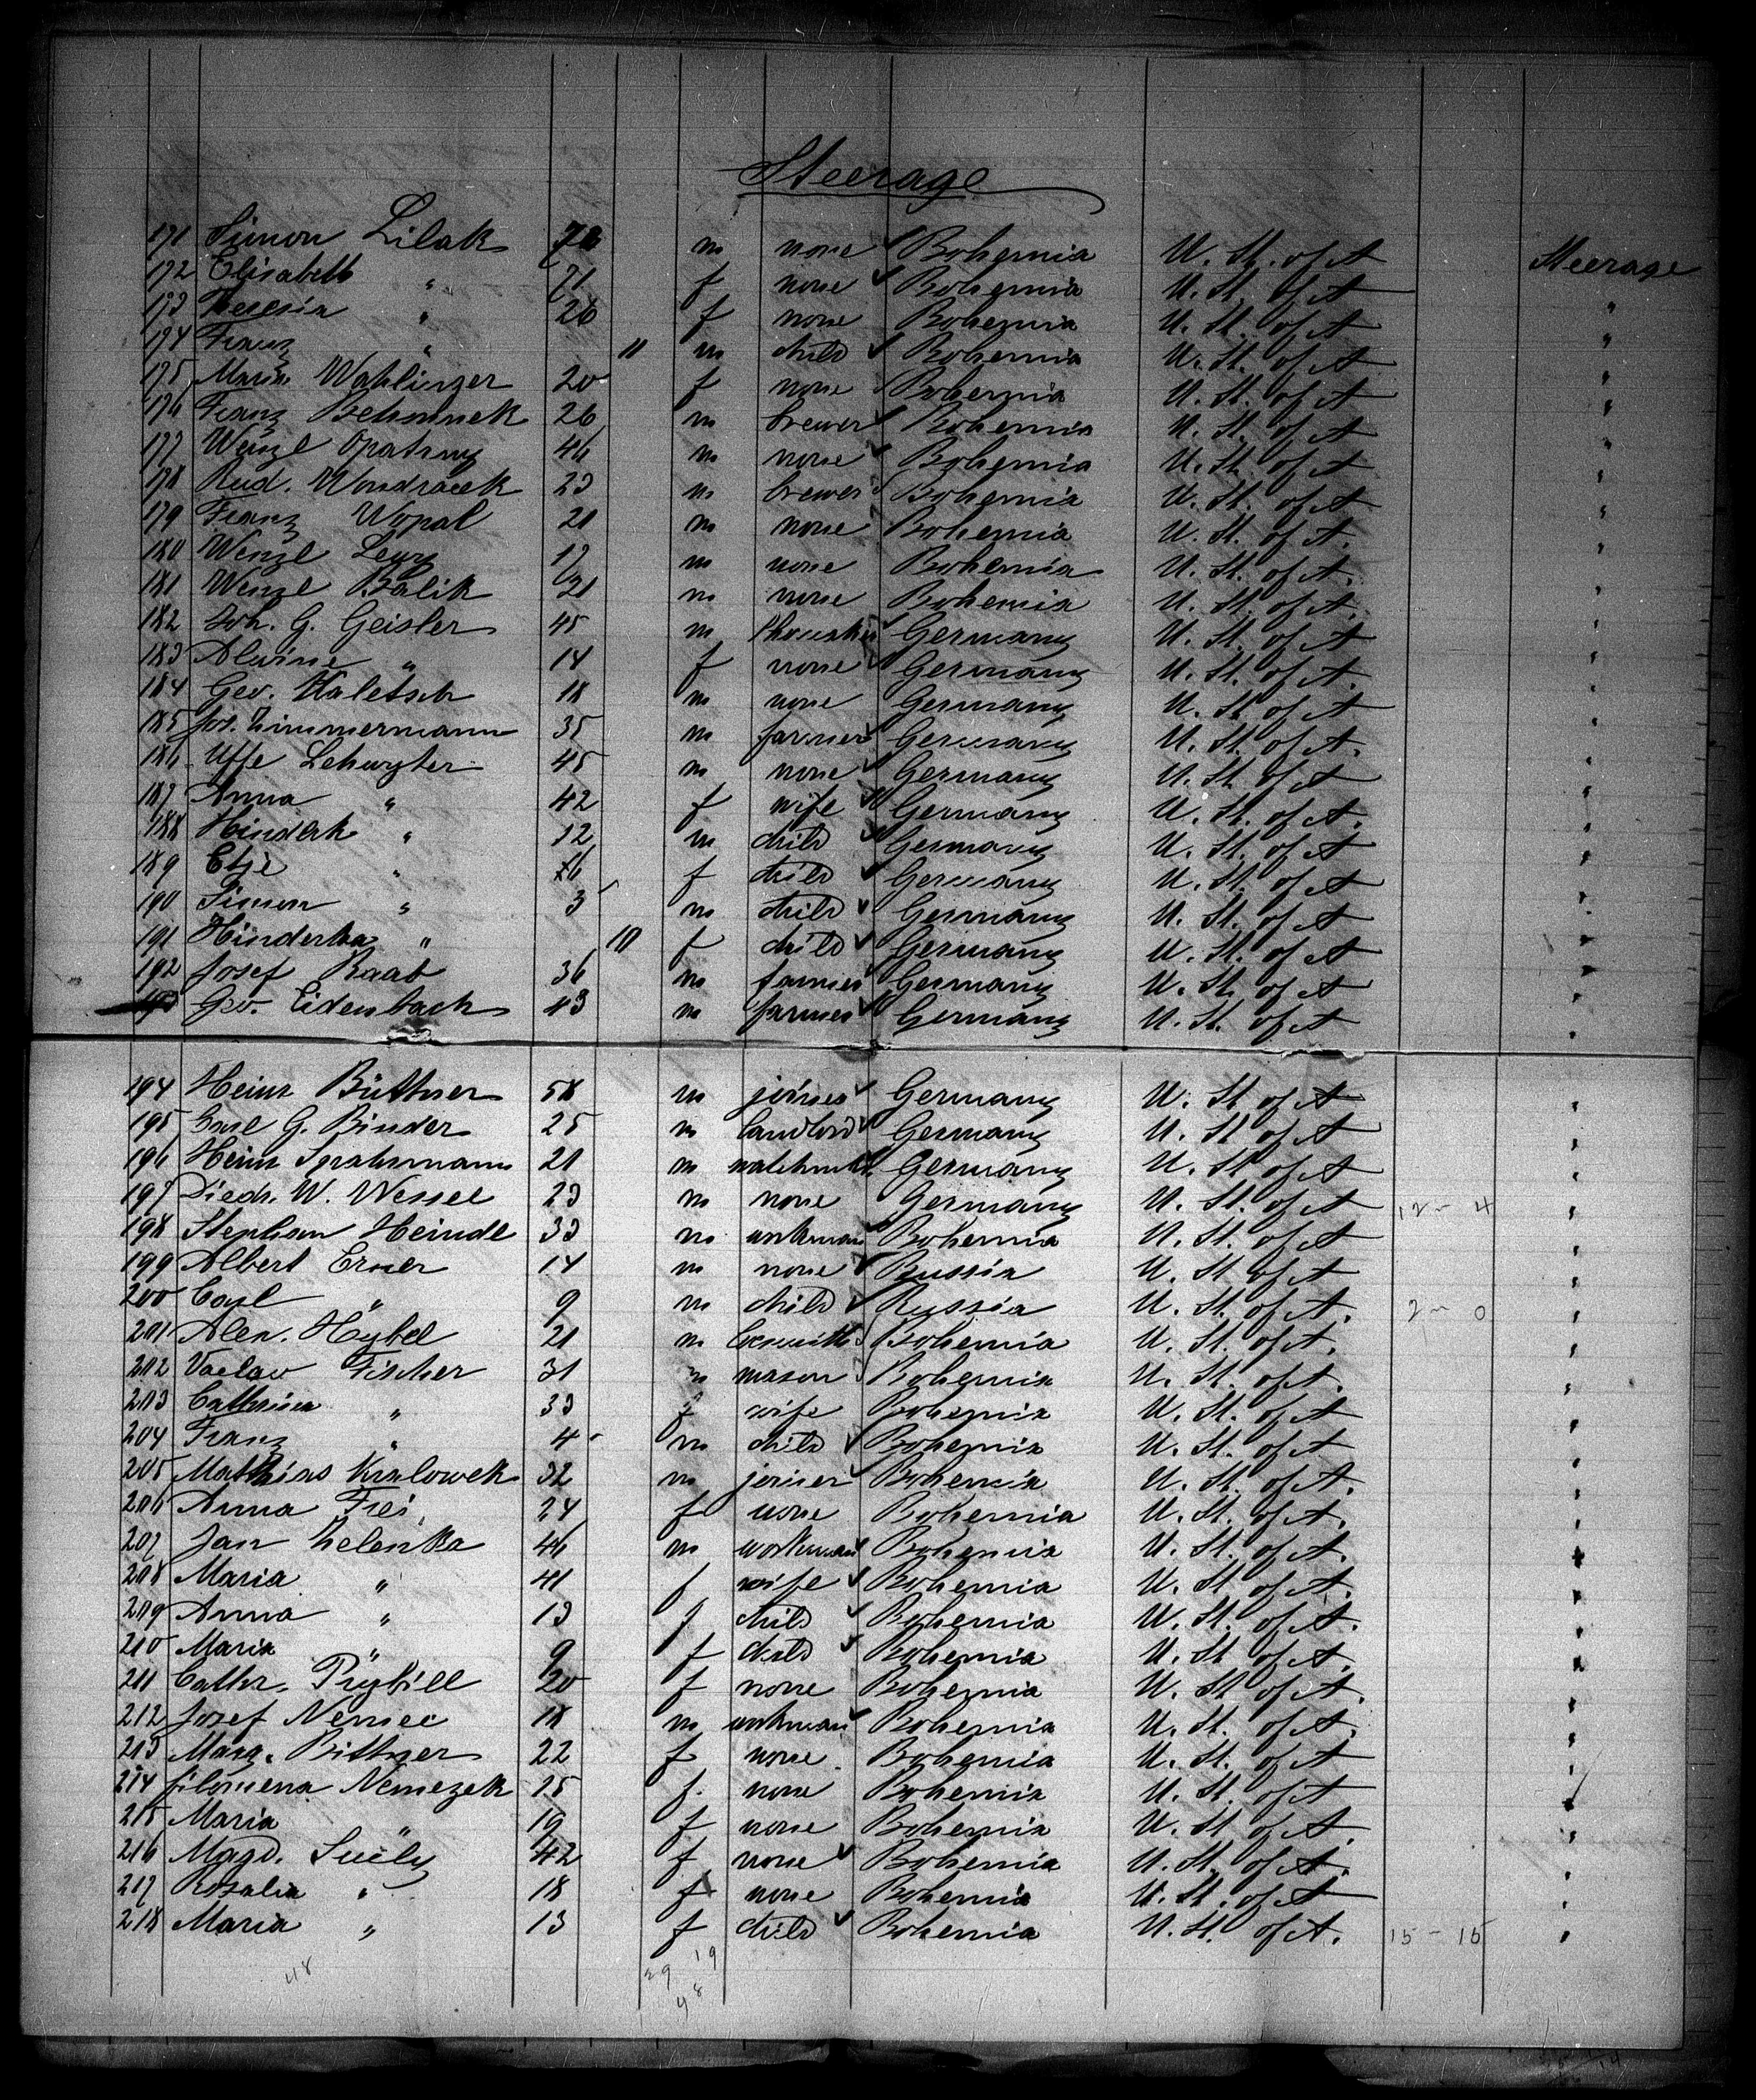 Steerage
171 Simon Lilak m none Bohemia U. St. of A Steerage
172 Elisabeth " 71 f none Bohemia U. St. of A "
173 Theresia " 26 f none Bohemia U. St. of A "
174 Franz " 11 m child Bohemia U. St. of A "
175 Maria Wahlinzer 20 f none Bohemia U. St. of A "
176 Franz 26 m brewer Bohemia U. St. of A "
177 Wenzl Opatrny 46 m none Bohemia U. St. of A "
178 Rud. Wondracek 23 m brewer Bohemia U. St. of A "
179 Franz Wopal 21 m none Bohemia U. St. of A. "
180 Wenzl 17 m none Bohemia U. St. of A. "
181 Wenzl Balik 21 m none Bohemia U. St. of A. "
182 Joh. G. Geisler 45 m Germany U. St. of A "
183 Alwine " 14 f none Germany U. St. of A. "
184 Geo. Haletsch 18 m none Germany U. St. of A "
185 Jos. Zimmermann 35 m farmer Germany U. St. of A. "
186 Uffe Lehuyter 45 m none Germany U. St. of A "
187 Anna " 42 f wife Germany U. St. of A. "
188 Hinderk " 12 m child Germany U. St. of A "
189 Etje " 6 f child Germany U. St. of A "
190 Simon " 3 m child Germany U. St. of A "
191 Hinderka " 10 f child Germany U. St. of A "
192 Josef Raab 36 m farmer Germany U. St. of A "
193 Geo. Eidenback 43 m farmer Germany U. St. of A "
194 Heinr Büttner 58 m joiner Germany U. St. of A "
195 Carl G. Binder 25 m landlord Germany U. St. of A "
196 Heinr Spratzmann 21 m Germany U. St. of A "
197 Diedr. W. Wessel 23 m none Germany U. St. of A 12 - 4 "
198 Stephan Heindl 33 m workman Bohemia U. St. of A "
199 Albert Exner 14 m none Russia U. St. of A "
200 Carl " 9 m child Russia U. St. of A. 2 - 0 "
201 Alex. Hybel 21 m Bohemia U. St. of A. "
202 Vaclav Fischer 31 m mason Bohemia U. St. of A. "
203 Catharina " 33 f wife Bohemia U. St. of A "
204 Franz " 4 m child Bohemia U. St. of A "
205 Mathias Kralowek 32 m joiner Bohemia U. St. of A. "
206 Anna Frei 24 f none Bohemia U. St. of A. "
207 Jan Zelenka 46 m workman Bohemia U. St. of A. "
208 Maria " 41 f wife Bohemia U. St. of A. "
209 Anna " 13 f child Bohemia U. St. of A. "
210 Maria " 9 f child Bohemia U. St. of A. "
211 Cathr. Prybill 20 f none Bohemia U. St. of A. "
212 Josef Nemec 18 m workman Bohemia U. St. of A. "
213 Marg. Bittner 22 f none Bohemia U. St. of A "
214 Filomena Nemezek 15 f. none Bohemia U. St. of A "
215 Maria " 19 f none Bohemia U. St. of A "
216 Magd. 42 f none Bohemia U. St. of A. "
217 Rosalia " 18 f none Bohemia U. St. of A "
218 Maria " 13 f child Bohemia U. St. of A. 15 - 15 "
48 29 19
48